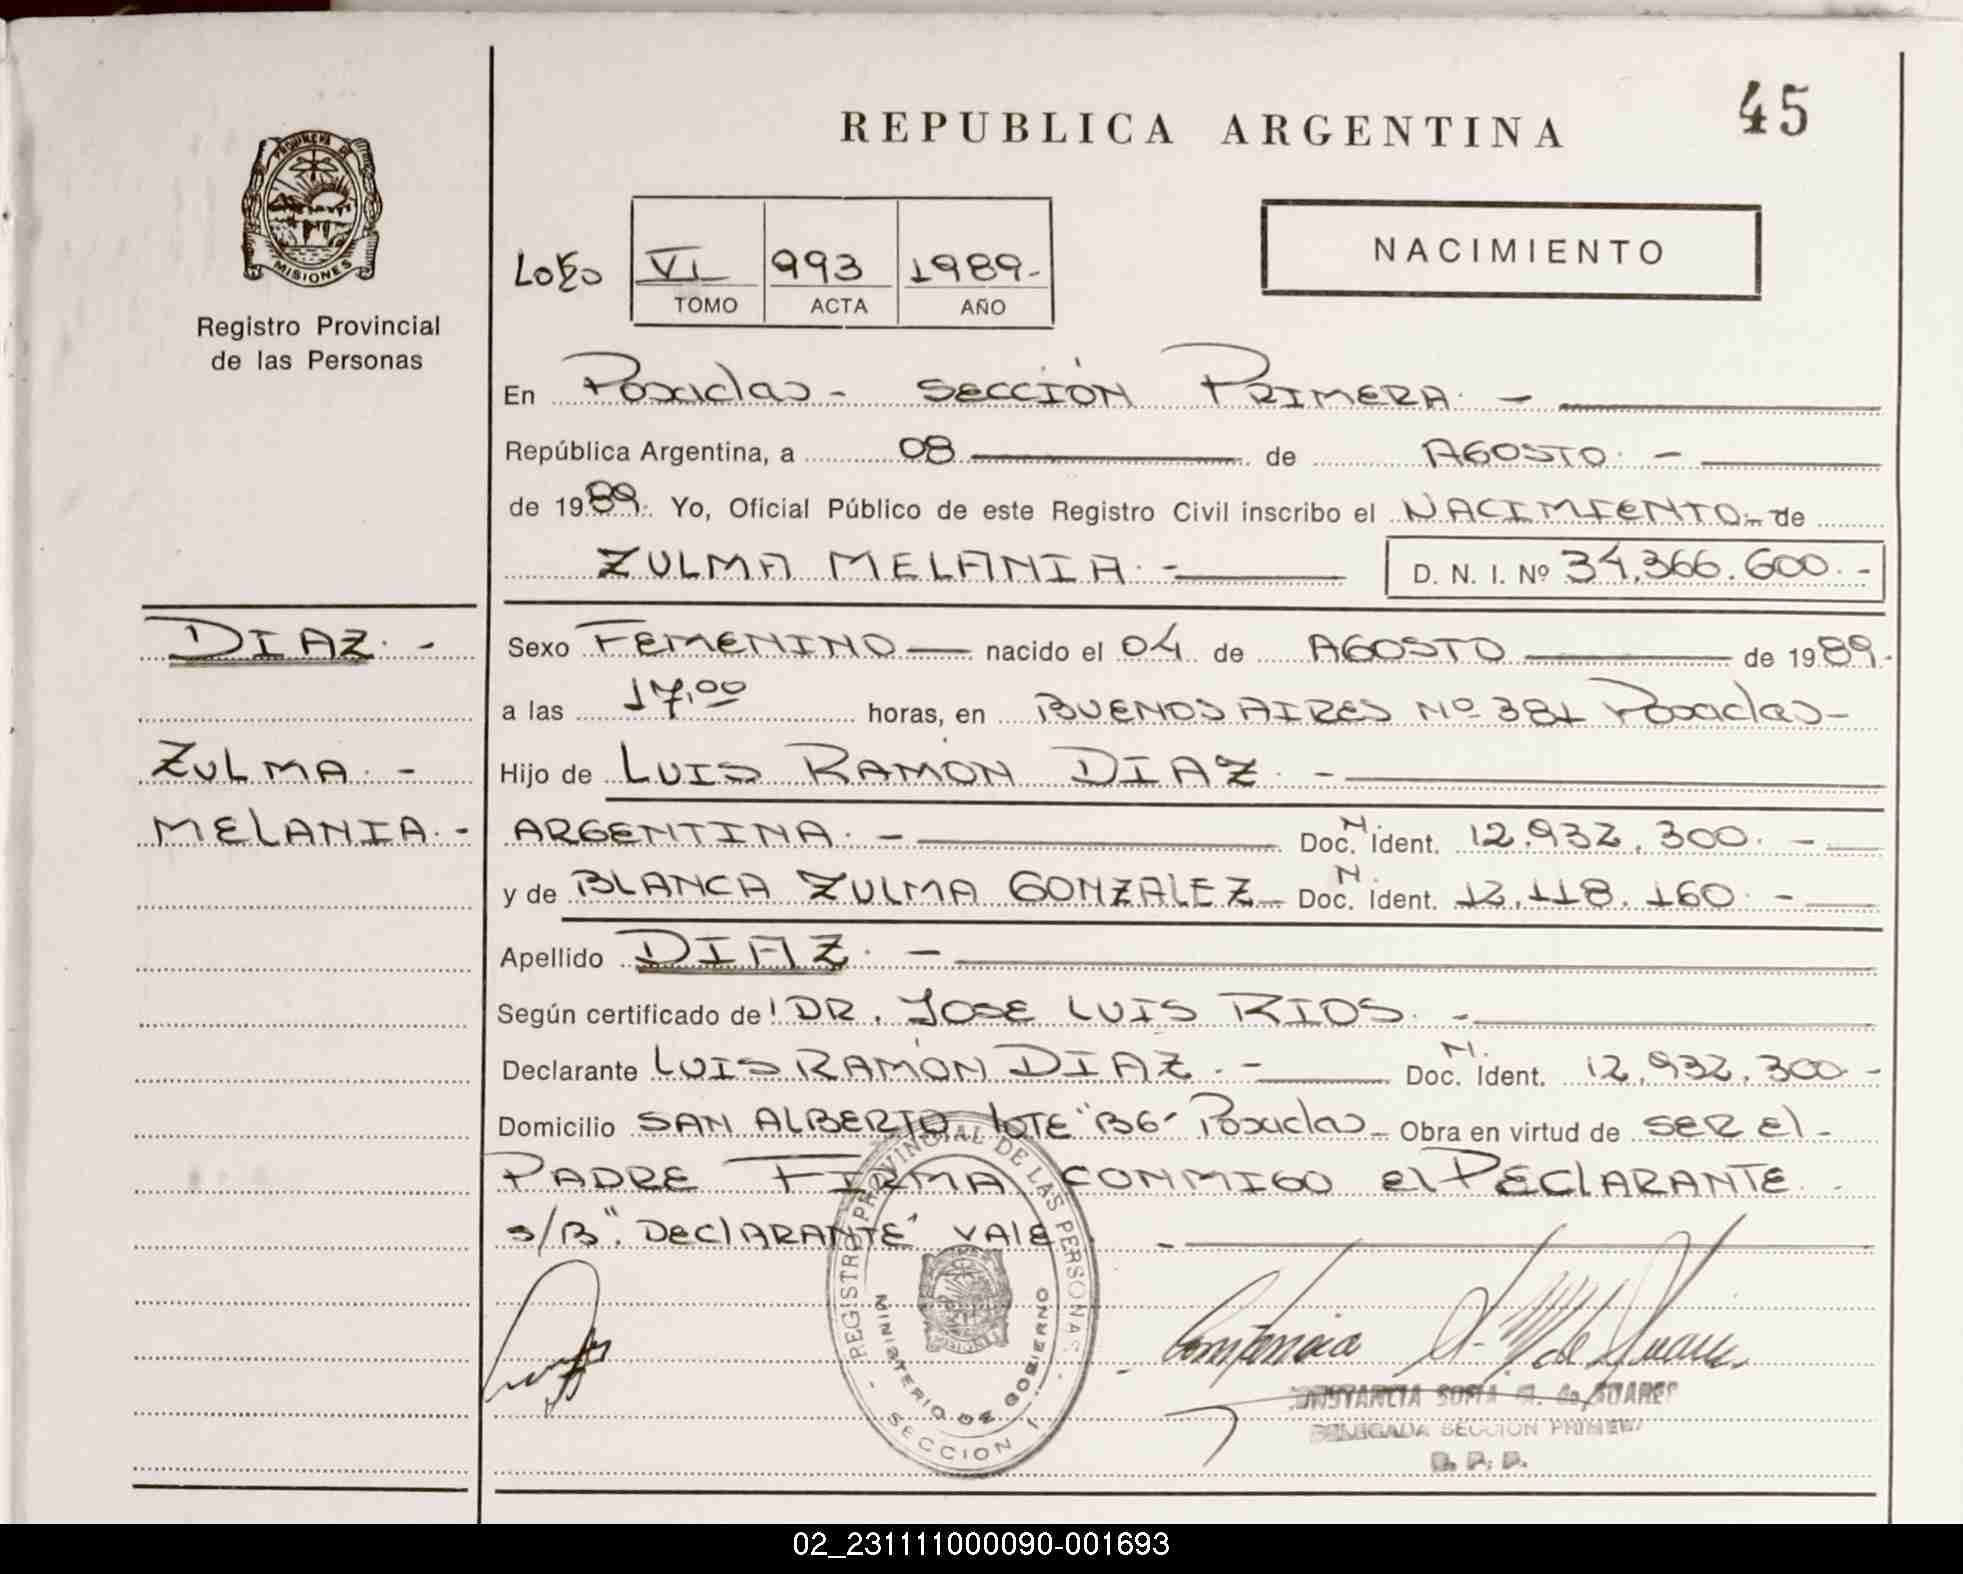 REPUBLICA ARGENTINA
45
PROVINCIA DE
MISIONES
Registro Provincial
de las Personas
VI 993 1989.-
TOMO ACTA AÑO
NACIMIENTO
En Posadas - SECCIÓN PRIMERA. -
República Argentina, a 08 de AGOSTO. -
de 1989. Yo, Oficial Público de este Registro Civil inscribo el NACIMIENTO.- de
ZULMA MELANIA. - D. N. I. Nº 34.366.600. -
DIAZ. -
Sexo FEMENINO nacido el 04 de AGOSTO de 1989.
a las 17,00 horas, en BUENOS AIRES Nº 381 Posadas -
ZULMA. -
Hijo de LUIS RAMÓN DIAZ. -
MELANIA. -
ARGENTINA. - Doc. N. Ident. 12.932.300. -
y de BLANCA ZULMA GONZALEZ - Doc. N. Ident. 12.118.160. -
Apellido DIAZ. -
Según certificado de DR. JOSE LUIS RIOS. -
Declarante LUIS RAMÓN DIAZ. - Doc. N. Ident. 12.932.300 -
Domicilio SAN ALBERTO lOTE "B6" Posadas - Obra en virtud de SER El -
PADRE FIRMA CONMIGO El DEClARANTE.
s/B". DEClARANTE" VAlE -
REGISTRO PROVINCIAL DE LAS PERSONAS
MINISTERIO DE GOBIERNO
MISIONES
- SECCION 1 -
CONSTANCIA SOFIA M. de SUARES
DELEGADA SECCION PRIMERA
02_231111000090-001693